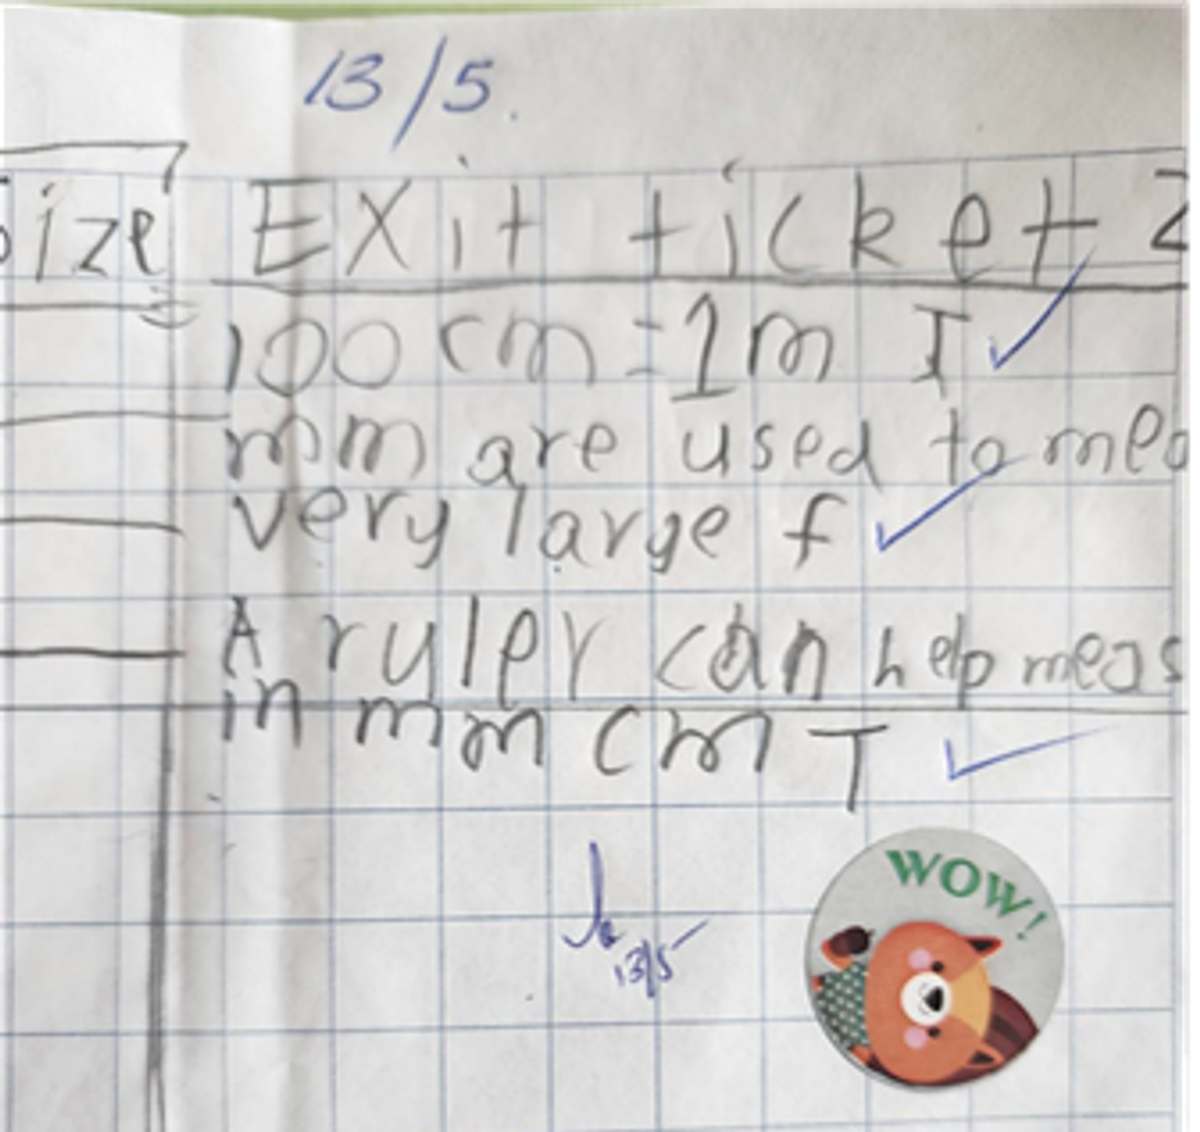 13/5.
size Exit ticket 2
100 cm = 1m T
mm are used to mea
very large f
A ruler can help meas
in mm cm T
13/5
WOW!